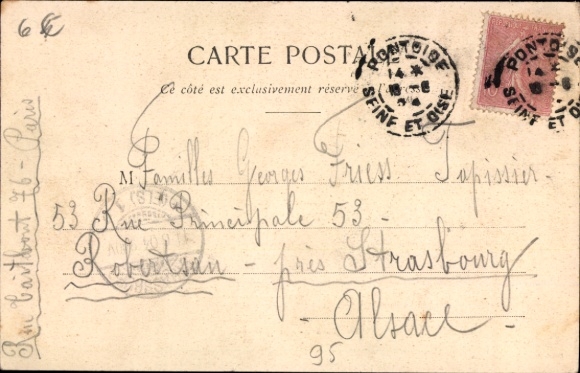 6€
CARTE POSTALE
Ce côté est exclusivement réservé à l'adresse
PONTOISE
14
SEINE ET OISE
PONTOISE
14
SEINE ET OISE
M Familles Georges Friess Tapissier.
53 Rue Principale 53 -
Robertsau - près Strasbourg
- Alsace -
95
Rue 76 - Paris